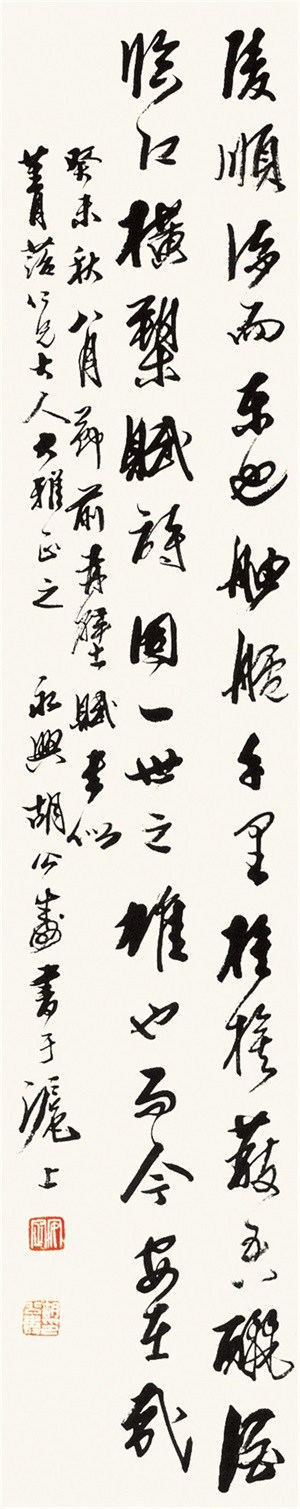 陵順流而東也舳艫千里旌旗蔽空釃酒
臨江橫槊賦詩固一世之雄也而今安在哉
癸未秋八月節前赤壁賦書似
菁仁兄大人大雅正之 永興胡公壽書于滬上